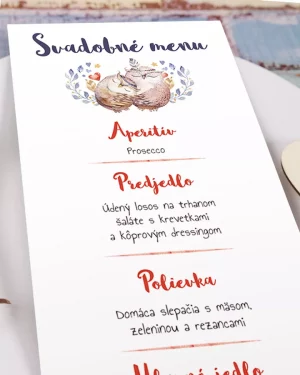 Svadobné menu
Aperitív
Prosecco
Predjedlo
Údený losos na trhanom
šaláte s krevetkami
a kôprovým dressingom
Polievka
Domáca slepačia s mäsom,
zeleninou a rezancami
Hlavné jedlo